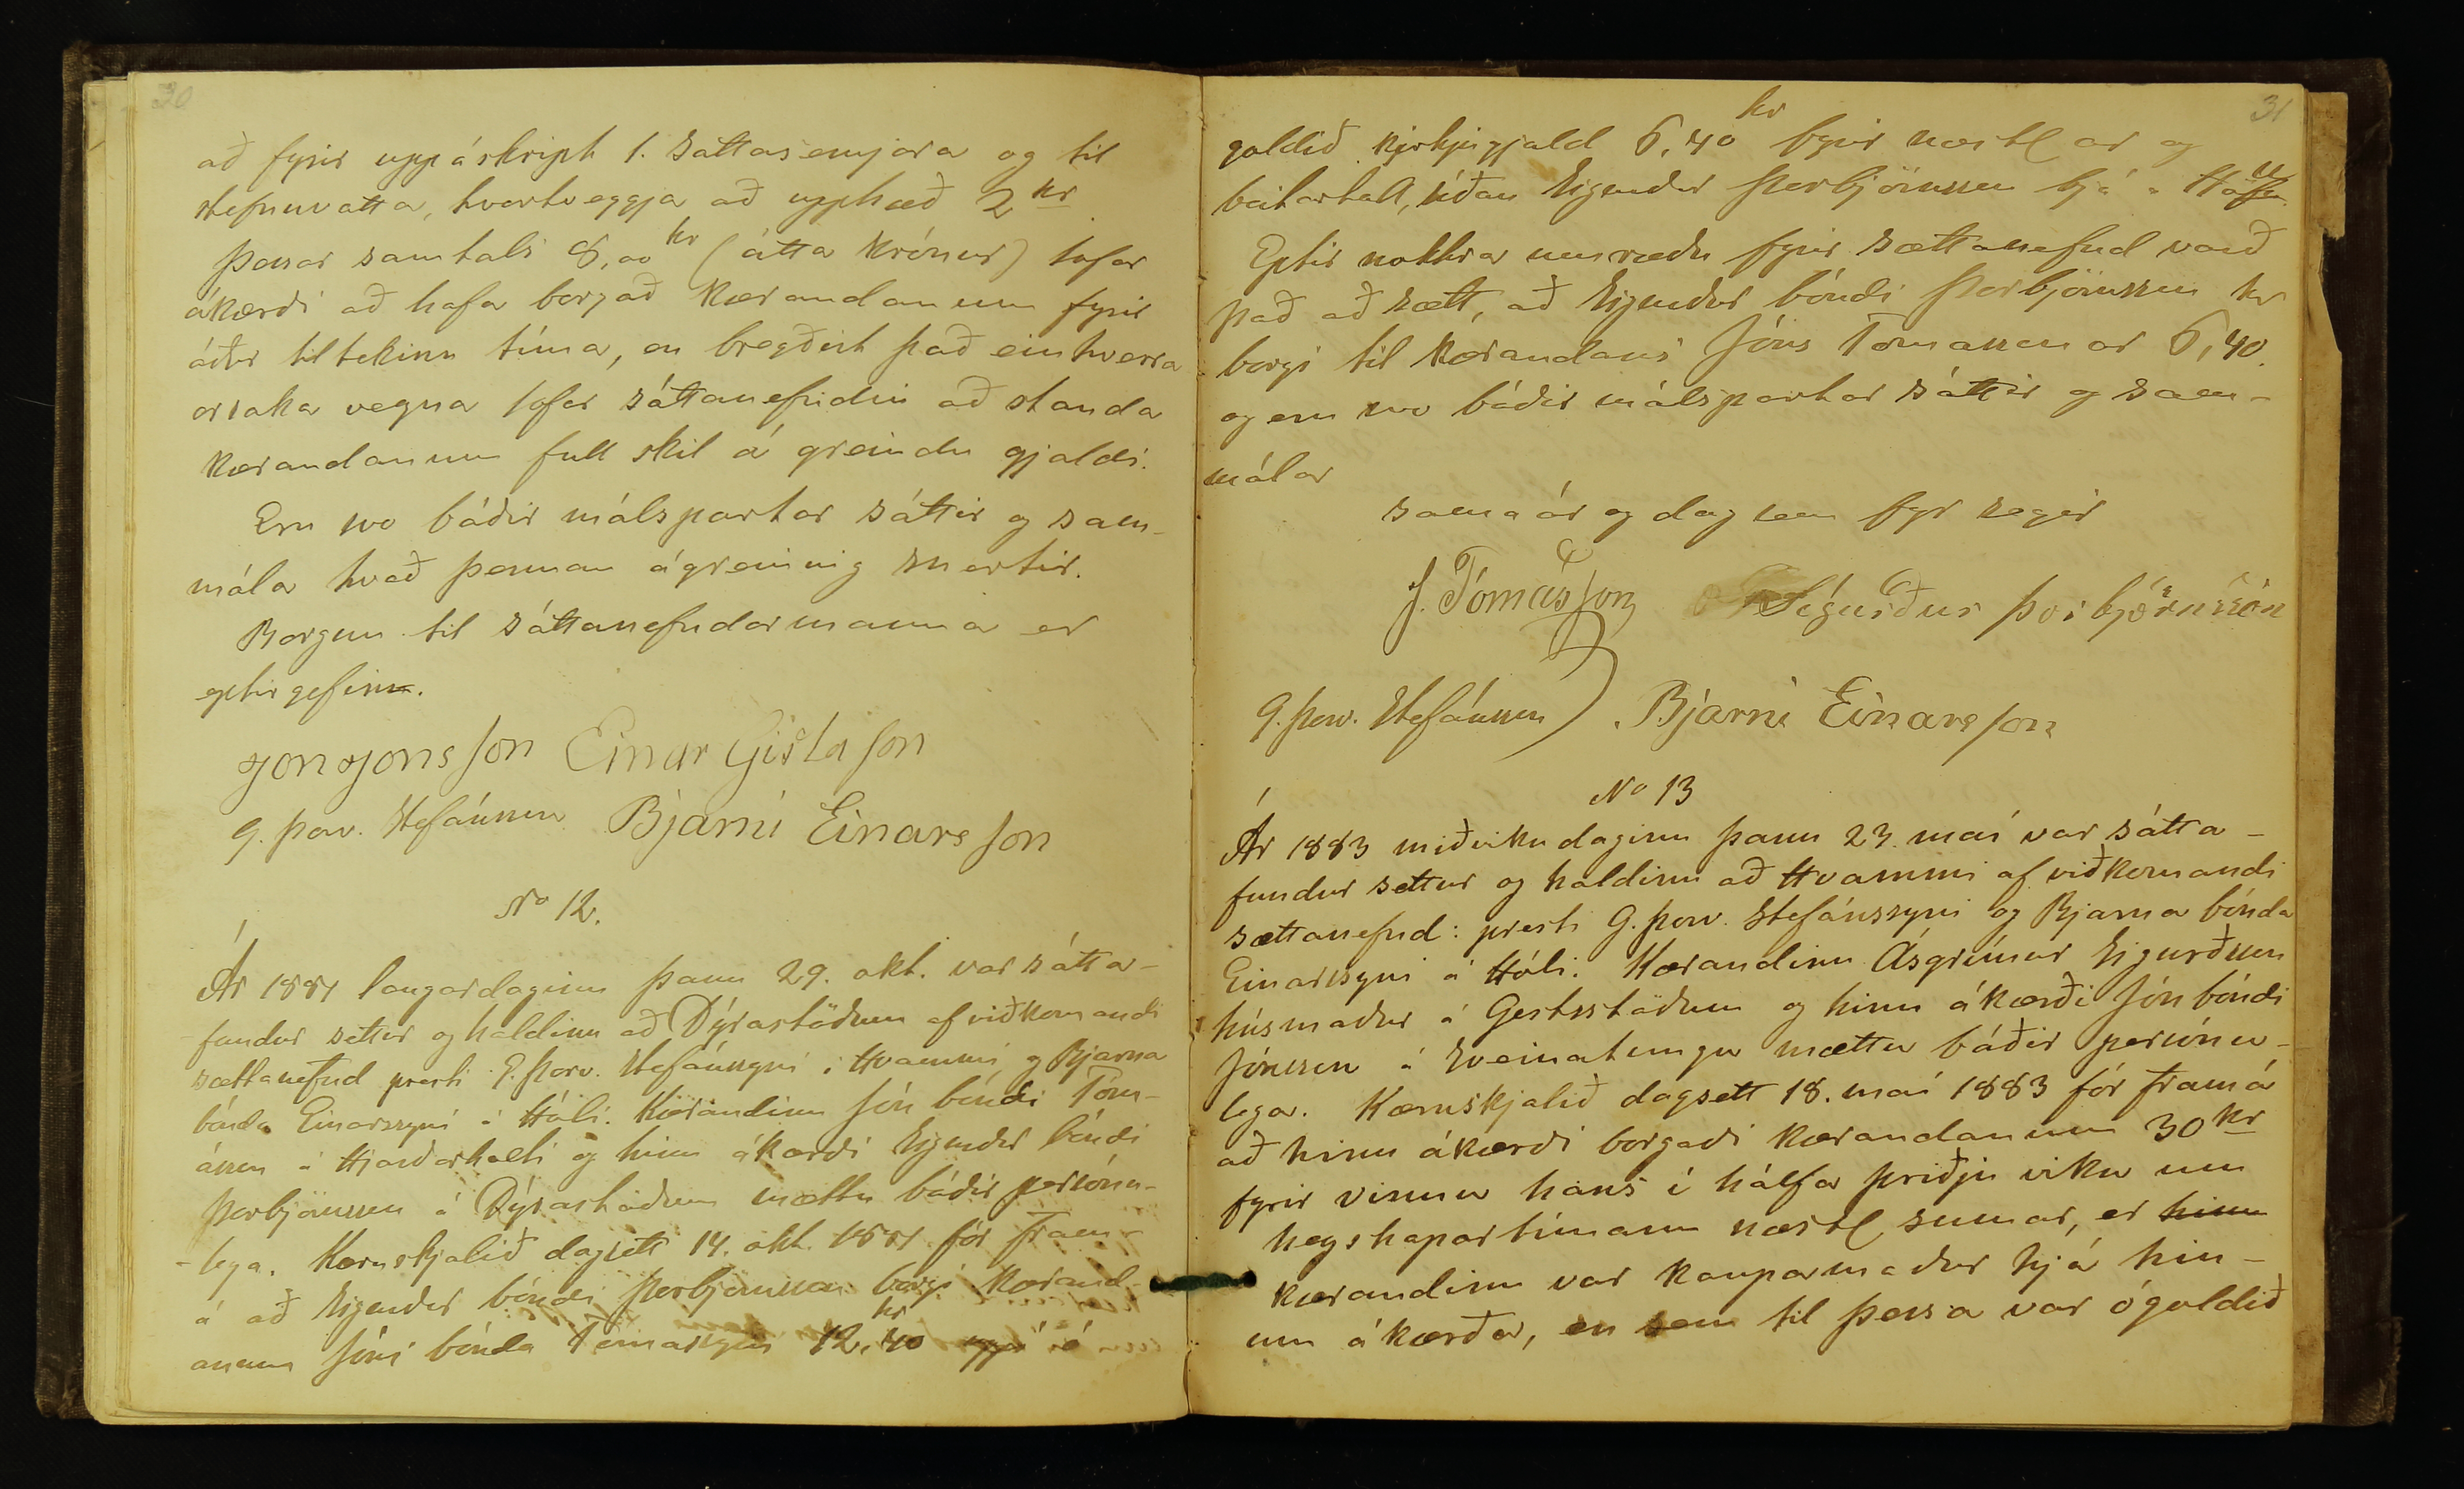 30
að fyrir uppáskript 1. sáttasemjara og til
stefnuvatta, hvortveggja að upphæð 2 kr
þessar samtals 8,00 kr (átta krónur) lofar
ákærði að hafa borgað kærandanum fyrir
áður tiltekinn tíma, en bregðist það einhverra
orsaka vegna lofar sáttanefndin að standa
kærandanum full skil á greindu gjaldi.
Eru svo báðir málspartar sáttir og sam-
mála hvað þennan ágreining snertir.
Borgun til sáttanefndarmanna er
eptirgefin.
Jon Jonsson Einar Gislason
G. Þorv. Stefánsson Bjarni Einarsson
No 12.
Ár 1881 laugardaginn þann 29. okt. var sátta-
fundur settur og haldinn að Dýrastöðum af viðkomandi
sættanefnd presti G. Þorv. Stefánssyni í Hvammi og Bjarna
bónda Einarssyni á Hóli. Kærandinn Jón bóndi Tóm-
ásson í Hjarðarholti og hinn ákærði Sigurður bóndi
Þorbjörnsson á Dýrastöðum mættu báðir persónu-
-lega. Kæruskjalið dagsett 14. okt. 1881 fór fram
á að Sigurður bóndi Þorbjörnsson borgi kærand-
anum Jóni bónda Tómassyni 12,40 kr uppí ó
31
goldið kirkjugjald 6,40 kr fyrir næstl ár og
síðan Sigurður Þorbjörnsson bjó á
Eptir nokkra umræðu fyrir sættanefnd varð
það að sætt, að Sigurður bóndi Þorbjörnsson kr
borgi til kærandans Jóns Tómassonar 6,40.
og eru svo báðir málspartar sáttir og sam-
mála
sama ár og dag sem fyr segir
J. Tómásson Sigurður Þorbjörnsson
G. Þorv. Stefánsson Bjarni Einarsson
No 13
Ár 1883 miðvikudaginn þann 23. maí var sátta-
fundur settur og haldinn að Hvammi af viðkomandi
sættanefnd: presti G. Þorv. Stefánssyni og Bjarna bónda
Einarssyni á Hóli. Kærandinn Ásgrímur Sigurðsson
húsmaður á Gestsstöðum og hinn ákærði Jón bóndi
Jónsson í Sveinatungu mættu báðir persónu-
lega. Kæruskjalið dagsett 18. maí 1883 fór fram á
að hinn ákærði borgaði kærandanum 30 kr
fyrir vinnu hans í hálfa þriðju viku um
heyskapartímann næstl sumar, er hinn
kærandinn var kaupamaður hjá hin-
um ákærða, en sem til þessa var ógoldið